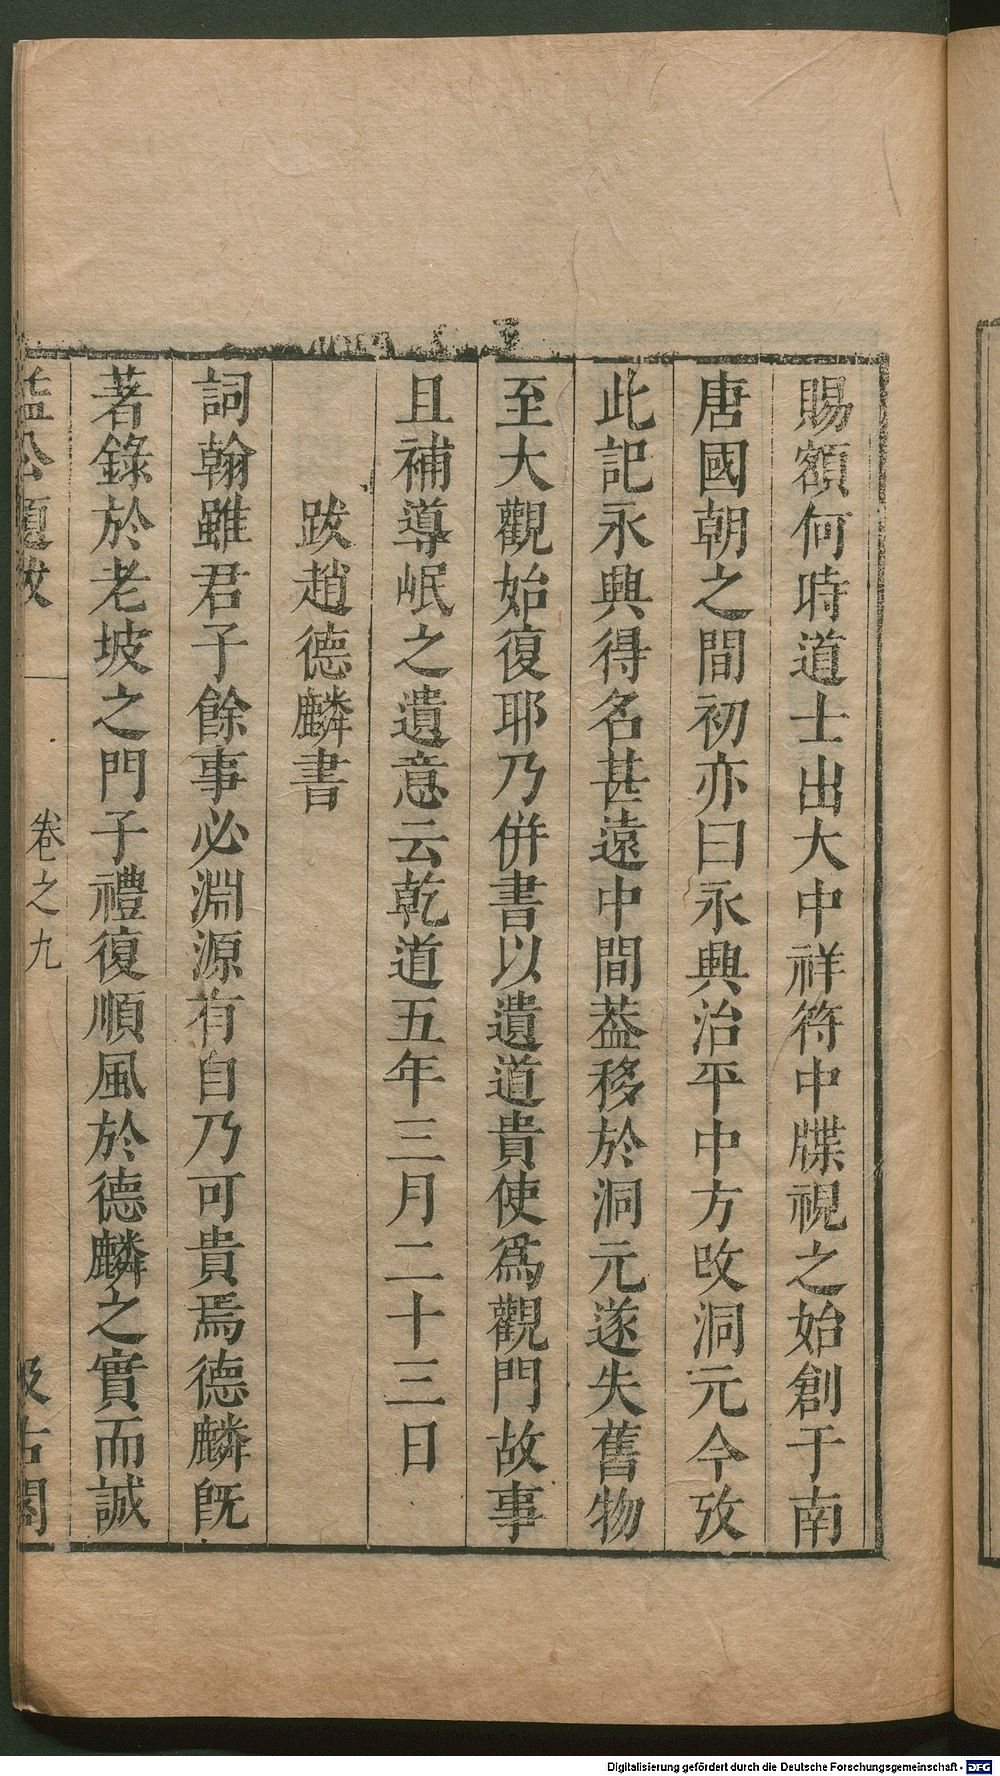 賜額何時道士出大中祥符中牒視之始創于南
唐國朝之間初亦曰永興治平中方改洞元今攷
此記永興得名甚遠中間葢移於洞元遂失舊物
至大觀始復耶乃併書以遺道貴使爲觀門故事
且補導岷之遺意云乾道五年三月二十三日
跋趙德麟書
詞翰雖君子餘事必淵源有自乃可貴焉德麟旣
著錄於老坡之門子禮復順風於德麟之實而誠
益公題跋
卷之九
汲古閣
Digitalisierung gefördert durch die Deutsche Forschungsgemeinschaft - DFG